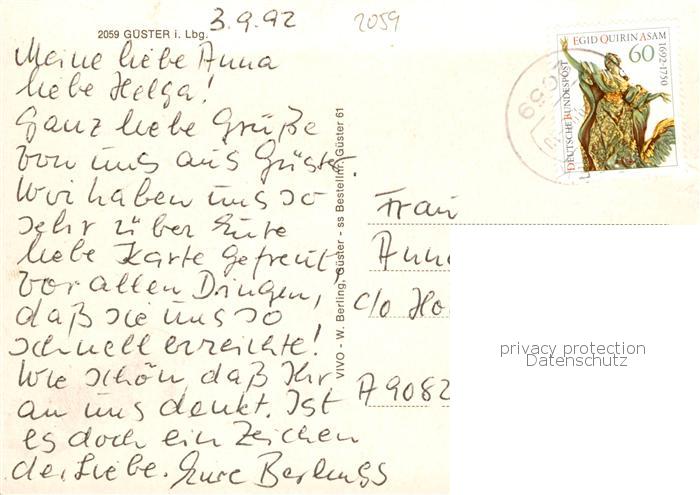 2059 GÜSTER i. Lbg. 3.9.92 2059
Meine liebe Anna
liebe Helga!
Ganz liebe Grüße
von uns aus Güster.
Wir haben uns so
sehr über Eure
liebe Karte gefreut,
vor allen Dingen,
daß sie uns so
schnell erreichte!
Wie schön, daß Ihr
an uns denkt. Ist
es doch ein Zeichen
der Liebe. Eure Berlings
VIVO - W. Berling, Güster - ss Bestellnr. Güster 61
EGID QUIRIN ASAM
60
1692-1750
DEUTSCHE BUNDESPOST
2059
Frau
Anna
c/o Ho
A 9082
privacy protection
Datenschutz